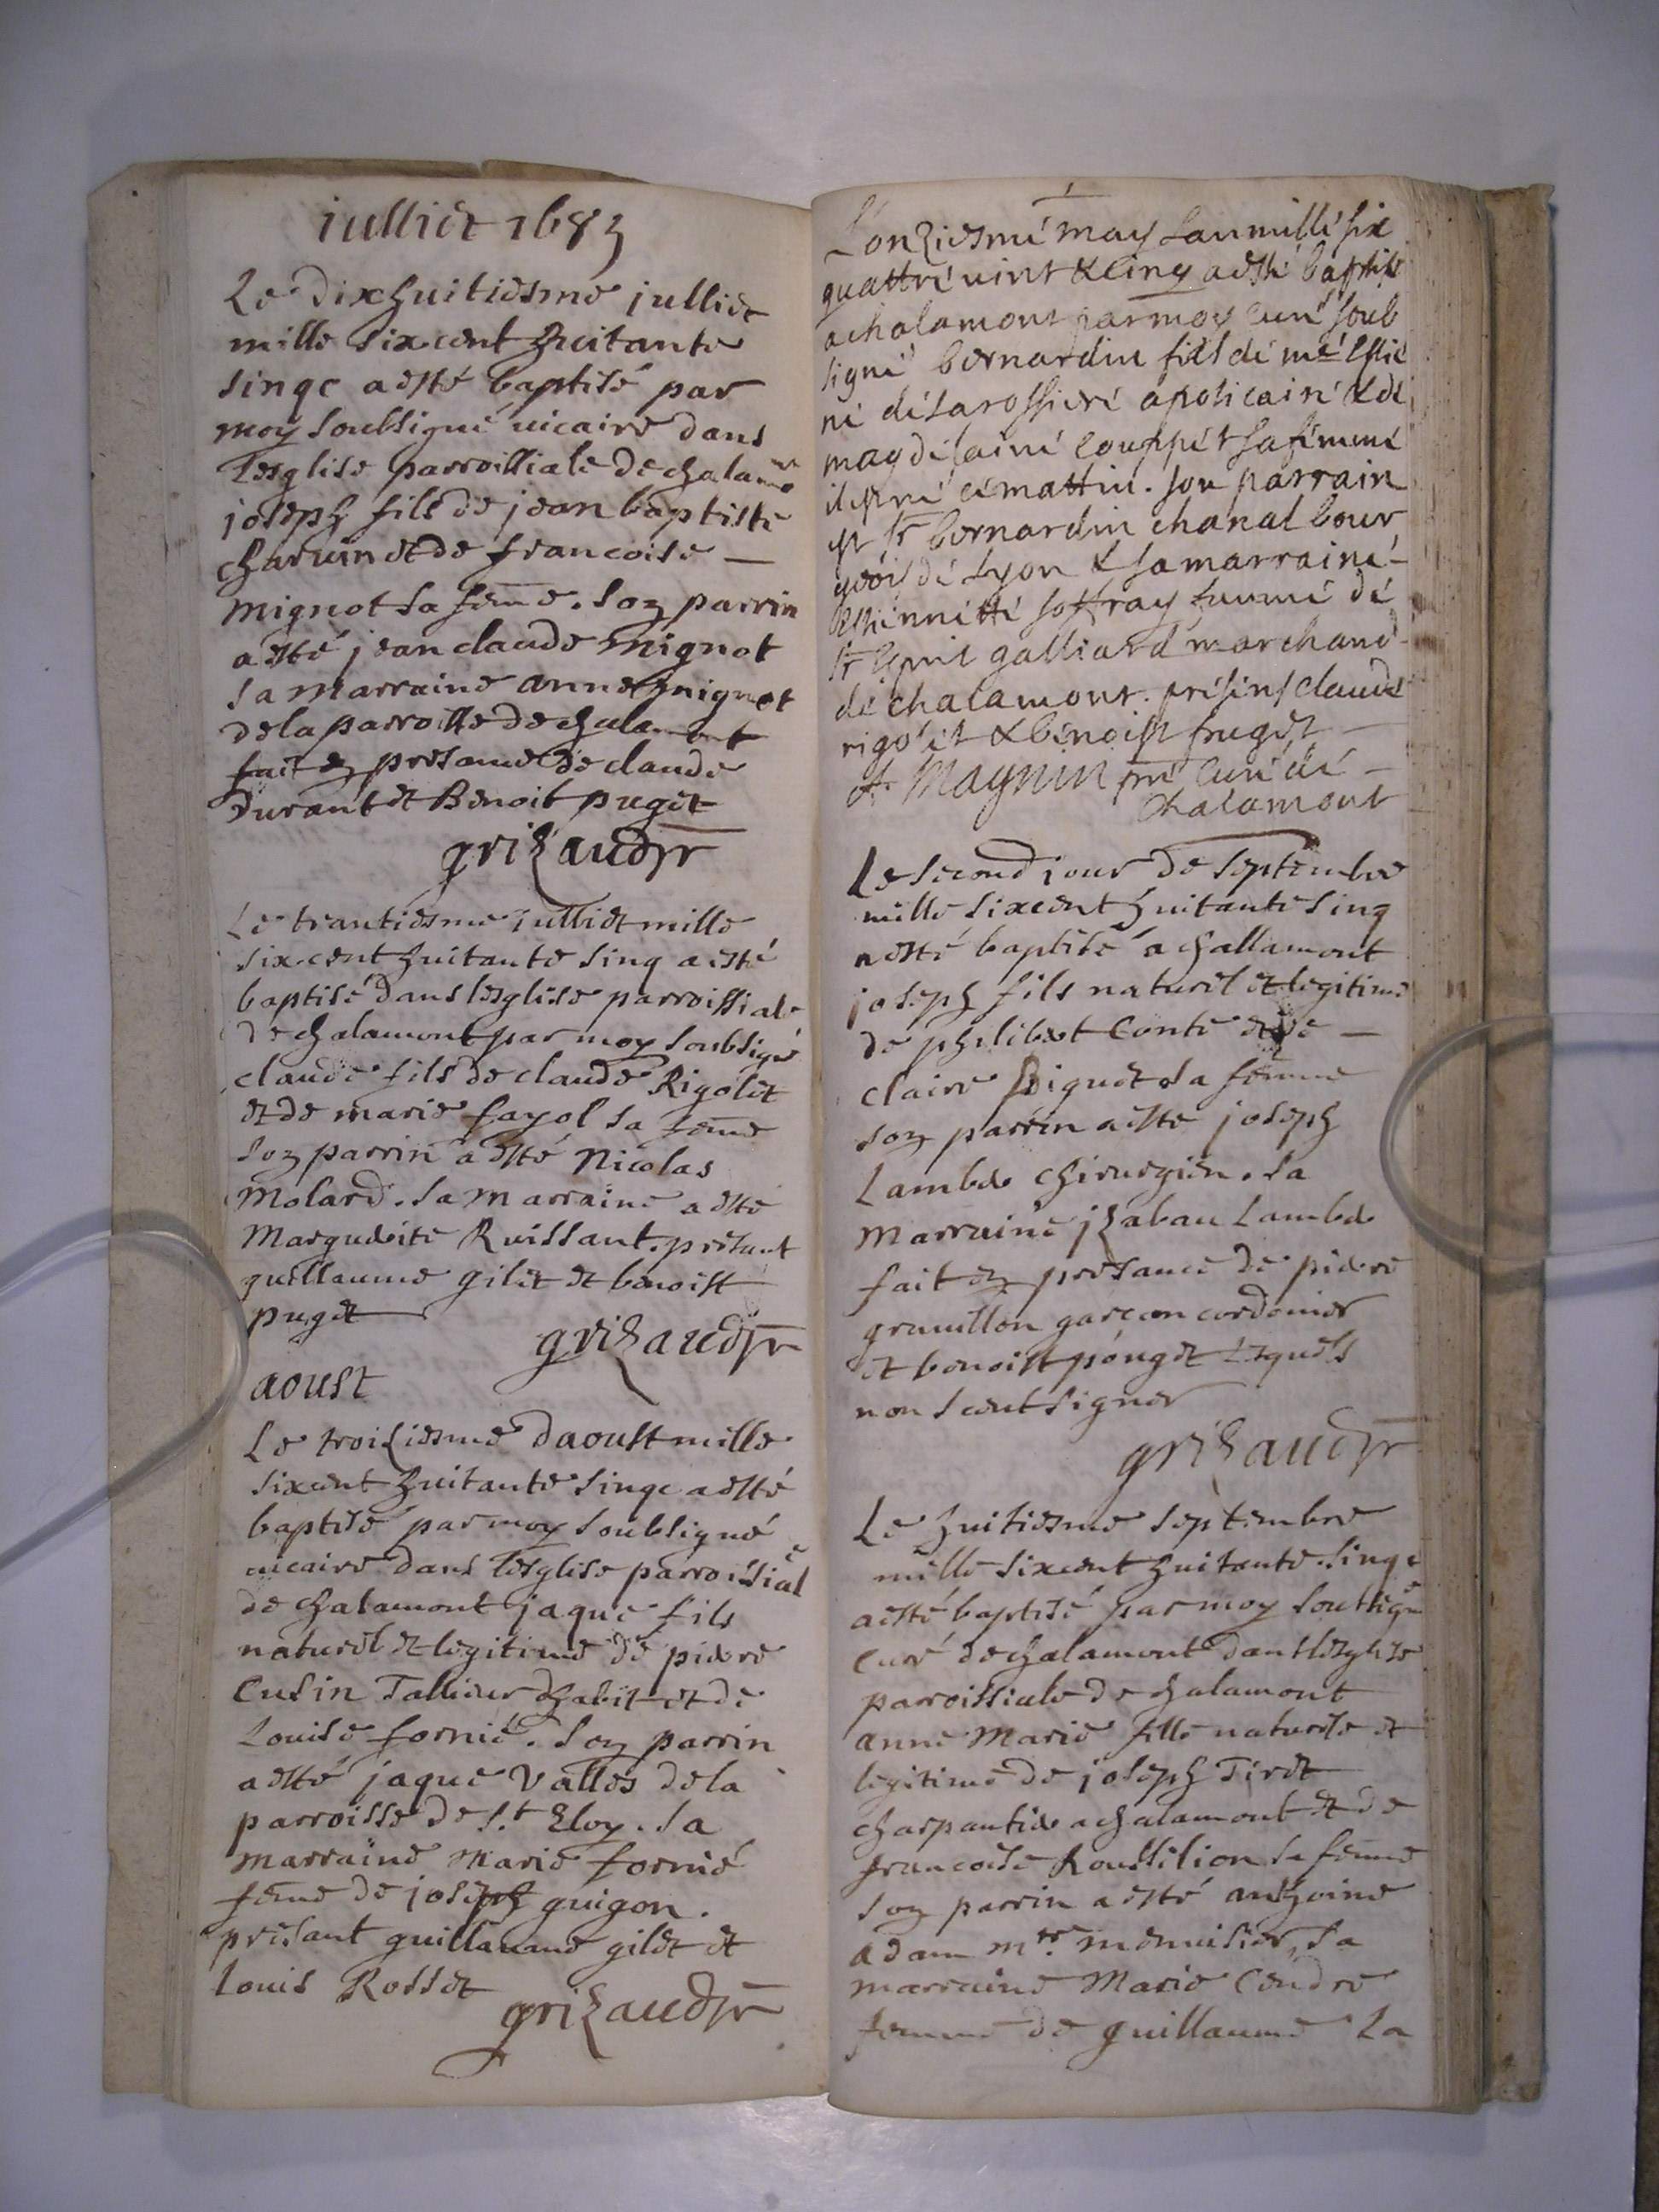 iulliet 1685
Le dixhuitiesme julliet
mille six cent huitante
singc a esté baptisé par
moy soubsigné uicaire dans
lesglise parroissiale de chalamont
joseph fils de jean baptiste
charuin et de francoise —
mignot sa feme. son parrin
a esté jean claude mignot
sa marraine anne mignot
de la parroisse de chalamont
fait en presance de claude
durant et Benoit puget
grizaud pr
Le trantiesme julliet mille
six cent huitante sinq a esté
baptisé dans lesglise parroissiale
de chalamont par moy soubsigné
claude fils de claude Rigolet
et de marie fayol sa feme
son parrin a esté Nicolas
molard. sa marraine a esté
Margueite Ruissant. presant
guillaume gilet et benoist
puget
grizaud pr
aoust
Le troiziesme daoust mille
sixcent huitante singc a esté
baptisé par moy soubsigné
uicaire dans lesglise parroissiale
de chalamont jaque fils
naturel et legitime de pierre
Cusin Tallieur dhabit et de
Louise fornié. son parrin
a esté jaque Valles de la
parroisse de s.t Eloy. sa
marraine Marie fornié
feme de joseph guigon.
presant guillaume gilet et
Louis Rosset
grizaud pr
L'onziesme may lan mille six
quattre uint & cinq a esté baptisé
a chalamont par moy curé soub
signé bernardin fils de me estie
ne de larossiere apoticaire & de
magdelaine couppet sa femme
il est né ce mattin. son parrain
est sr bernardin chanal bour
geois de Lyon & sa marraine
estiennette soffray femme de
sr galliard marchand
de chalamont. presens claude
rigolet & benoist puget
A. Magnin pre curé de —
chalamont
Le second jour de septembre
mille sixcent huitante sinq
a esté baptisé a challamont
joseph fils naturel et legitime
de philibert Conte et de —
claire Piguet sa femme
son parrin a esté joseph
Lambert chirurgien. sa
marraine jzabau Lambert
fait en presance de pierre
gruuillon garçon cordonier
et benoist pouget lesquels
non sceut signer
grizaud pr
Le huitiesme septembre
mille sixcent huitante singc
a esté baptisé par moy soubsigné
curé de chalamont dans lesglise
parroissiale de chalamont
anne Marie fille naturele et
legitime de joseph Tiret
charpantier a chalamont et de
francoise Roussilion sa femme
son parrin a esté anthoine
adam mtre menuisier, sa
marraine Marie Cendre
femme de guillaume La